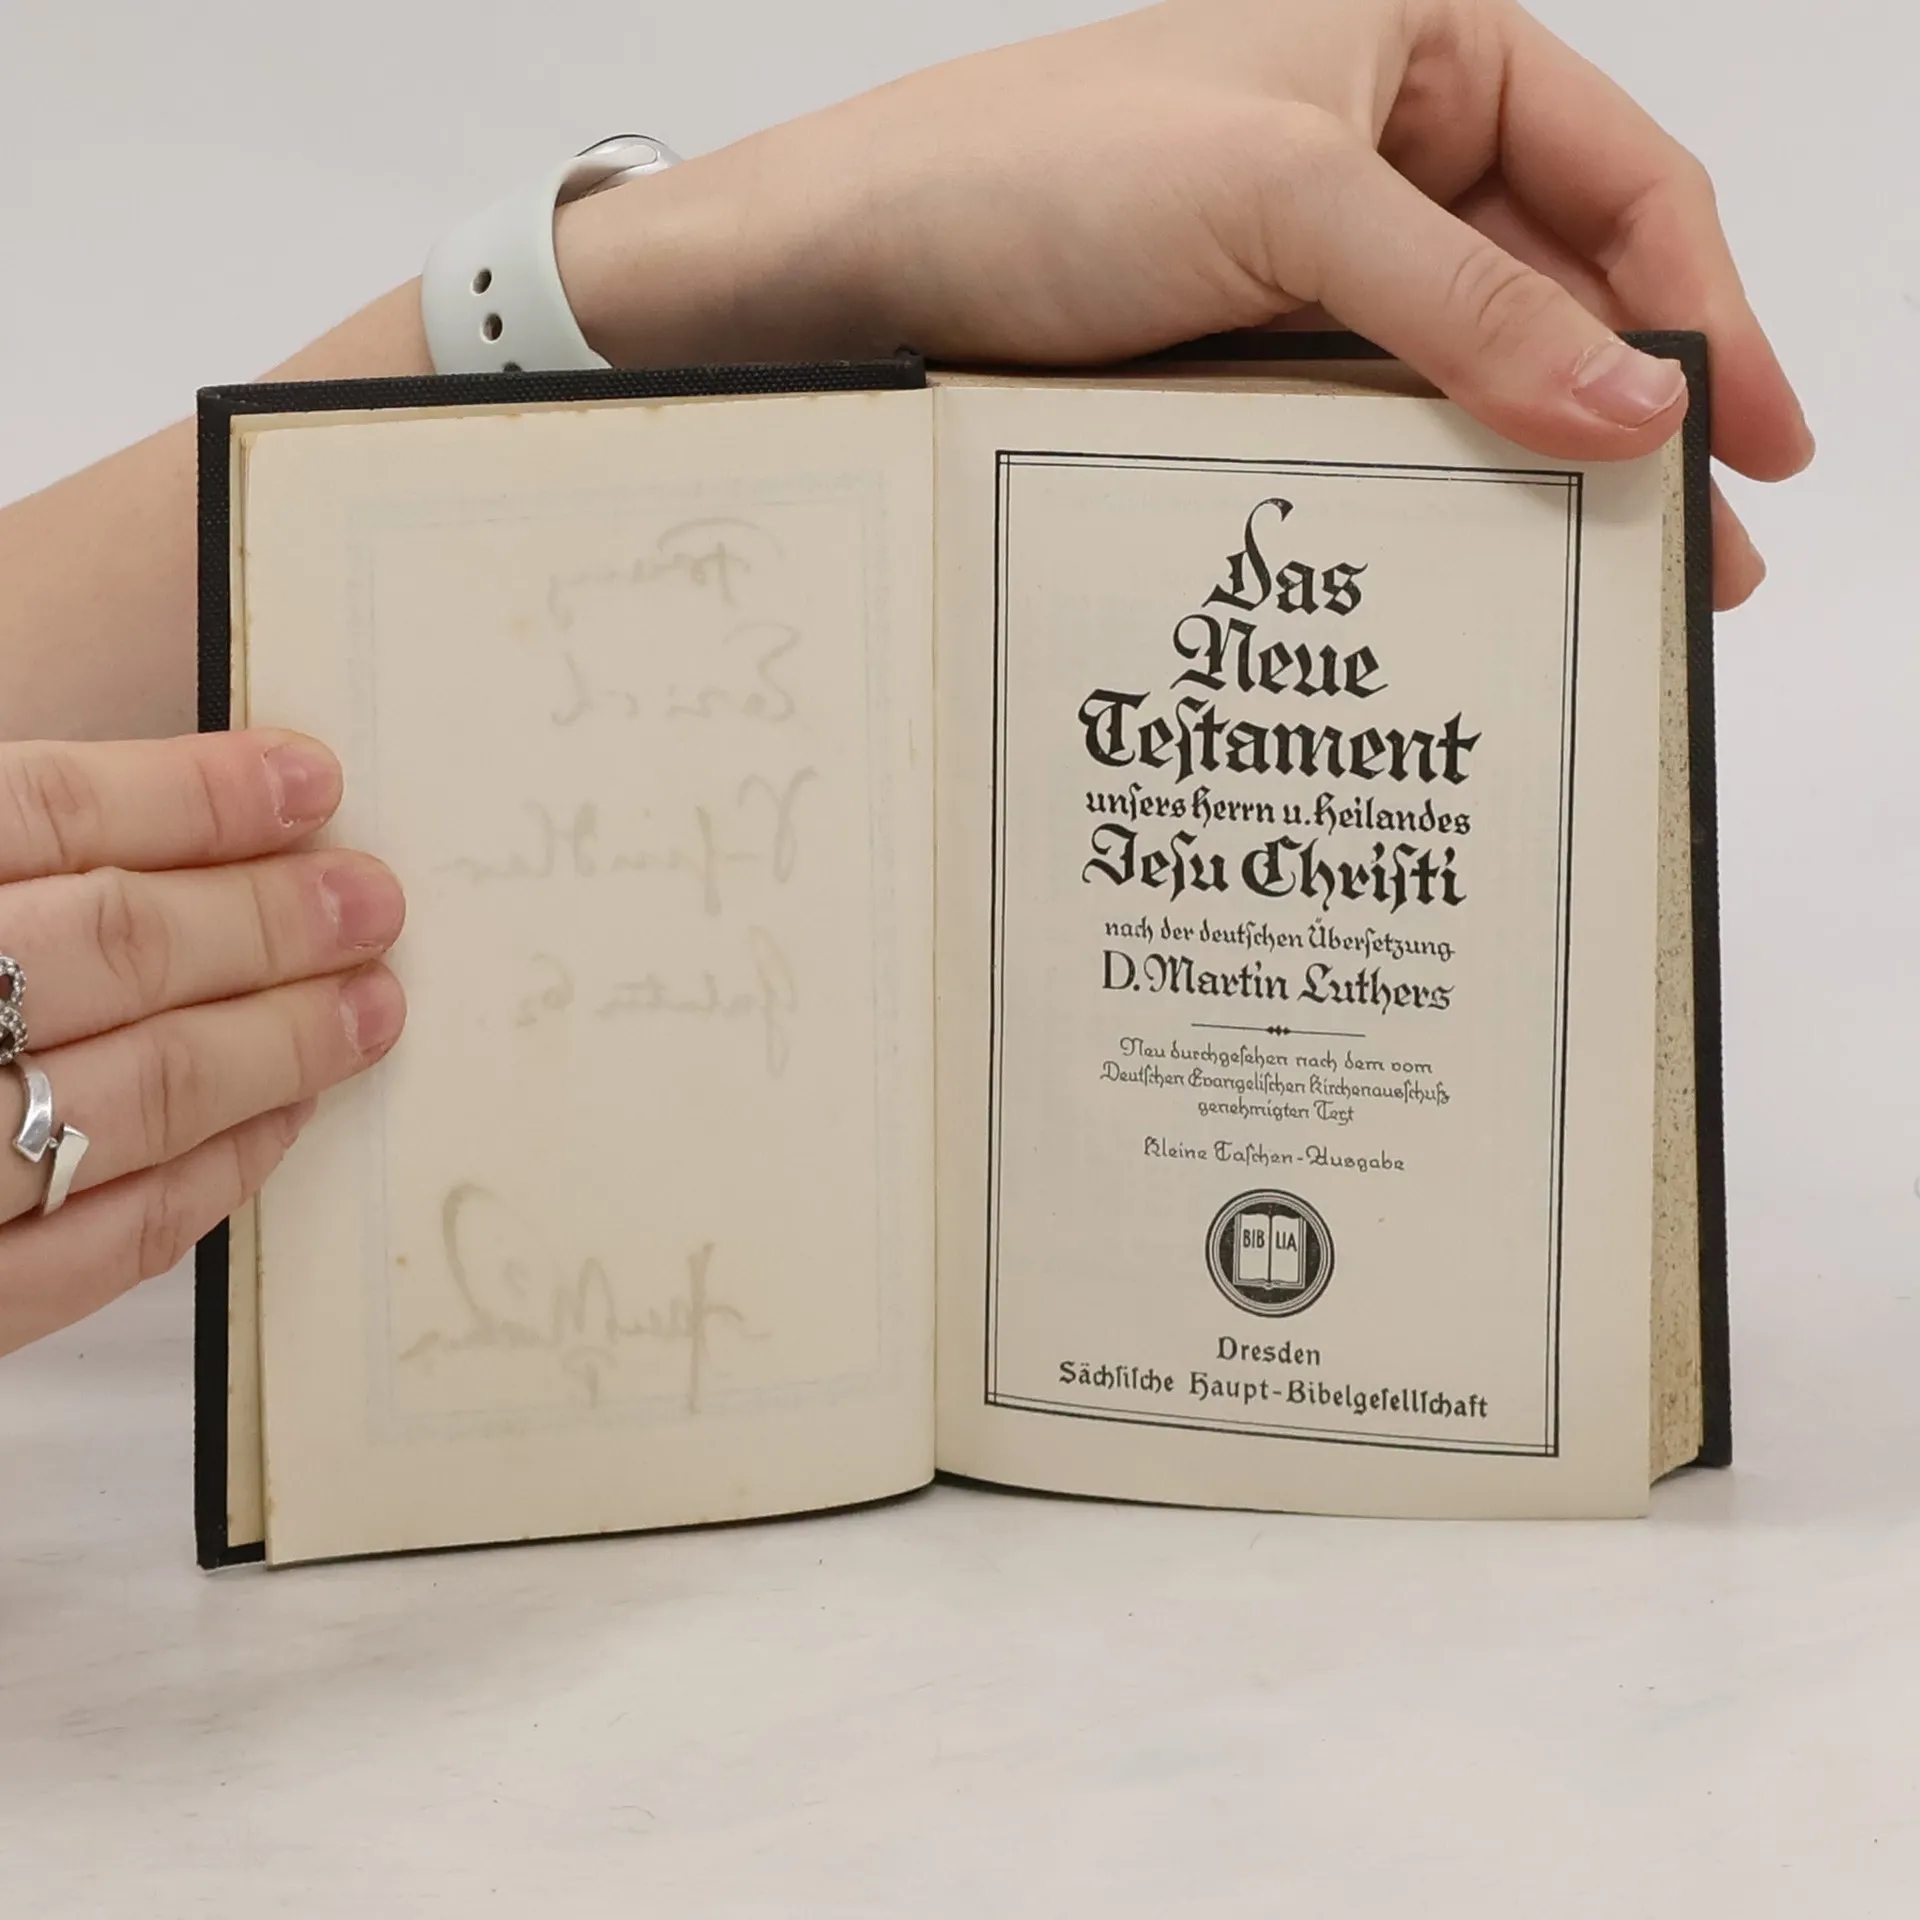 Das
Neue
Teſtament
unſers Herrn u. Heilandes
Jeſu Chriſti
nach der deutſchen Überſetzung
D. Martin Luthers
Neu durchgeſehen nach dem vom
Deutſchen Evangeliſchen Kirchenausſchuß
genehmigten Text
Kleine Taſchen-Ausgabe
BIBLIA
Dresden
Sächſiſche Haupt-Bibelgeſellſchaft